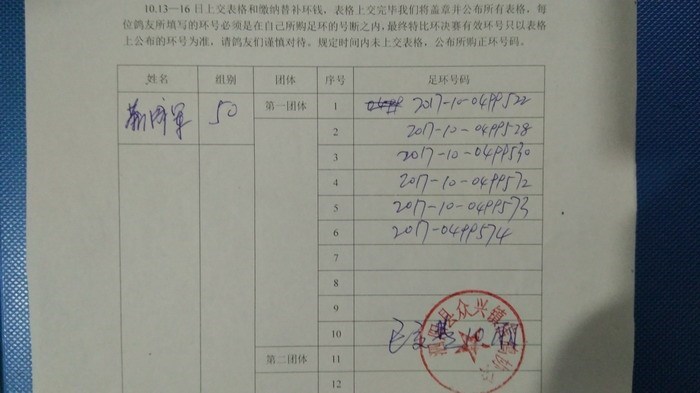 10.13—16 日上交表格和缴纳替补环钱，表格上交完毕我们将盖章并公布所有表格，每
位鸽友所填写的环号必须是在自己所购足环的号断之内，最终特比环决赛有效环号只以表格
上公布的环号为准，请鸽友们谨慎对待。规定时间内未上交表格，公布所购正环号码。
姓名 组别 团体 序号 足环号码
军 50 第一团体 1 2017-10-0499522
2 2017-10-0499528
3 2017-10-0499530
4 2017-10-0499572
5 2017-10-0499573
6 2017-0499574
7
8
9
10 已交 10
第二团体 11
12
县众兴镇